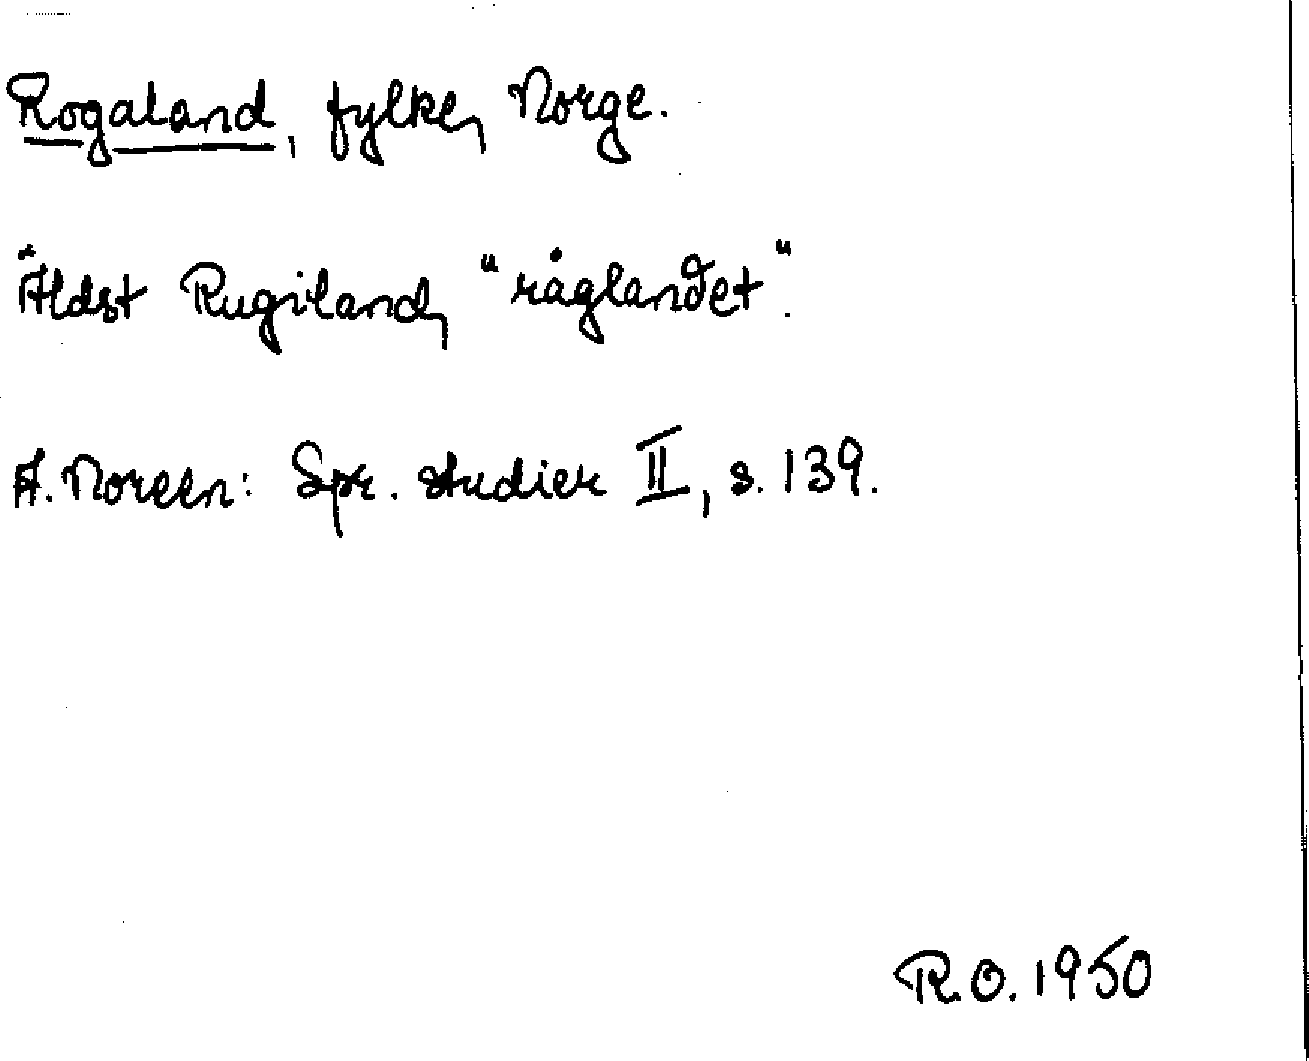 Rogaland, fylke, Norge.
Äldst Rugiland, "råglandet".
A. Noreen: Spr. studier II, s. 139.
R.O. 1950